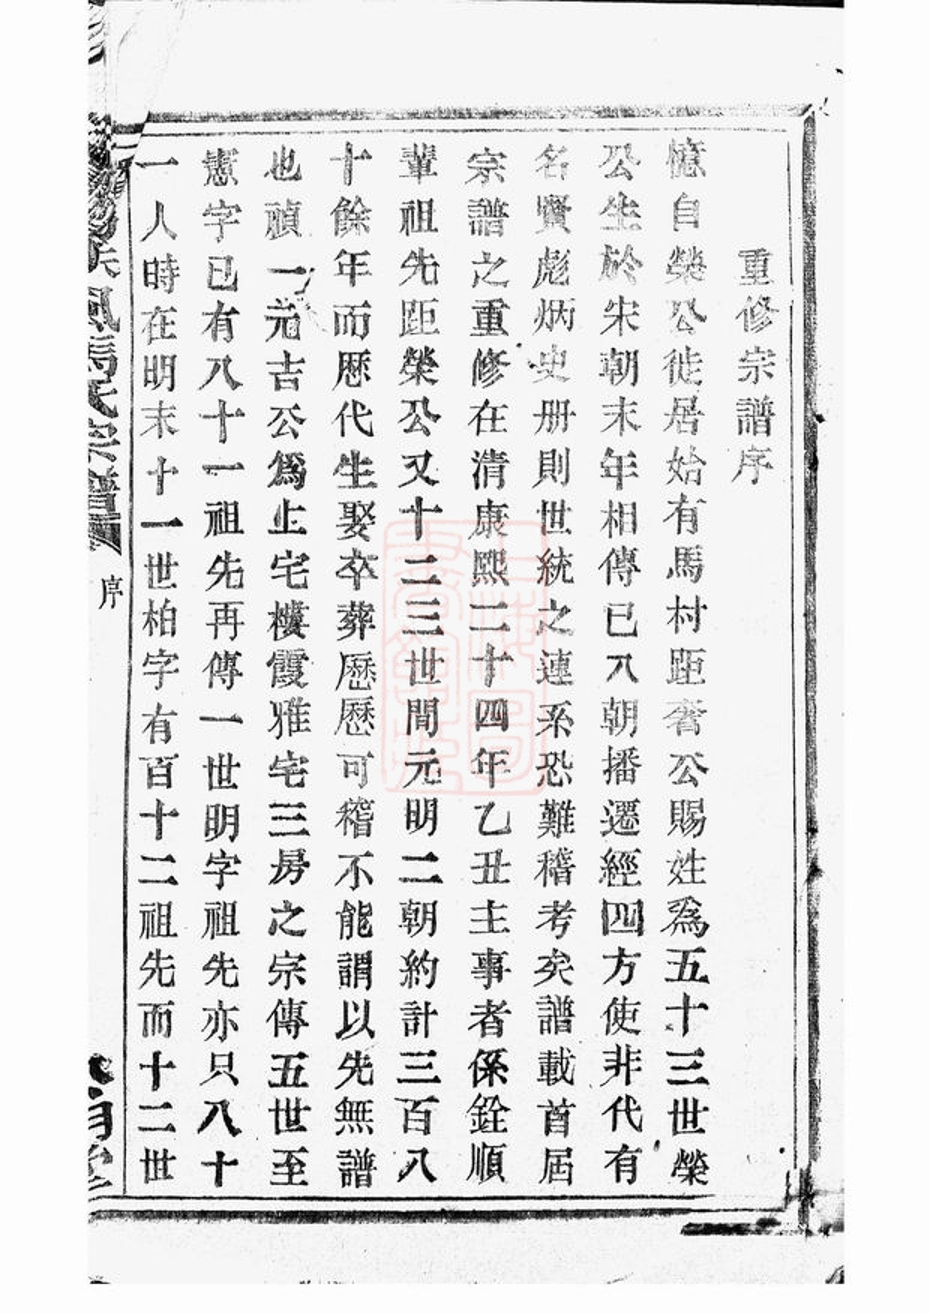 重修宗譜序
憶自榮公徙居始有馬村距奢公賜姓爲五十三世榮
公生於宋朝末年相傳已八朝播遷經四方使非代有
名賢彪炳史册則世統之連系恐難稽考矣譜載首屆
宗譜之重修在清康熙二十四年乙丑主事者係銓順
輩祖先距榮公又十二三世間元明二朝約計三百八
十餘年而歷代生娶卒葬歷歷可稽不能謂以先無譜
也禎一元吉公爲上宅樓霞雅宅三房之宗傳五世至
憲字已有八十一祖先再傳一世明字祖先亦只八十
一人時在明末十一世柏字有百十二祖先而十二世
扶風馬氏宗譜
序